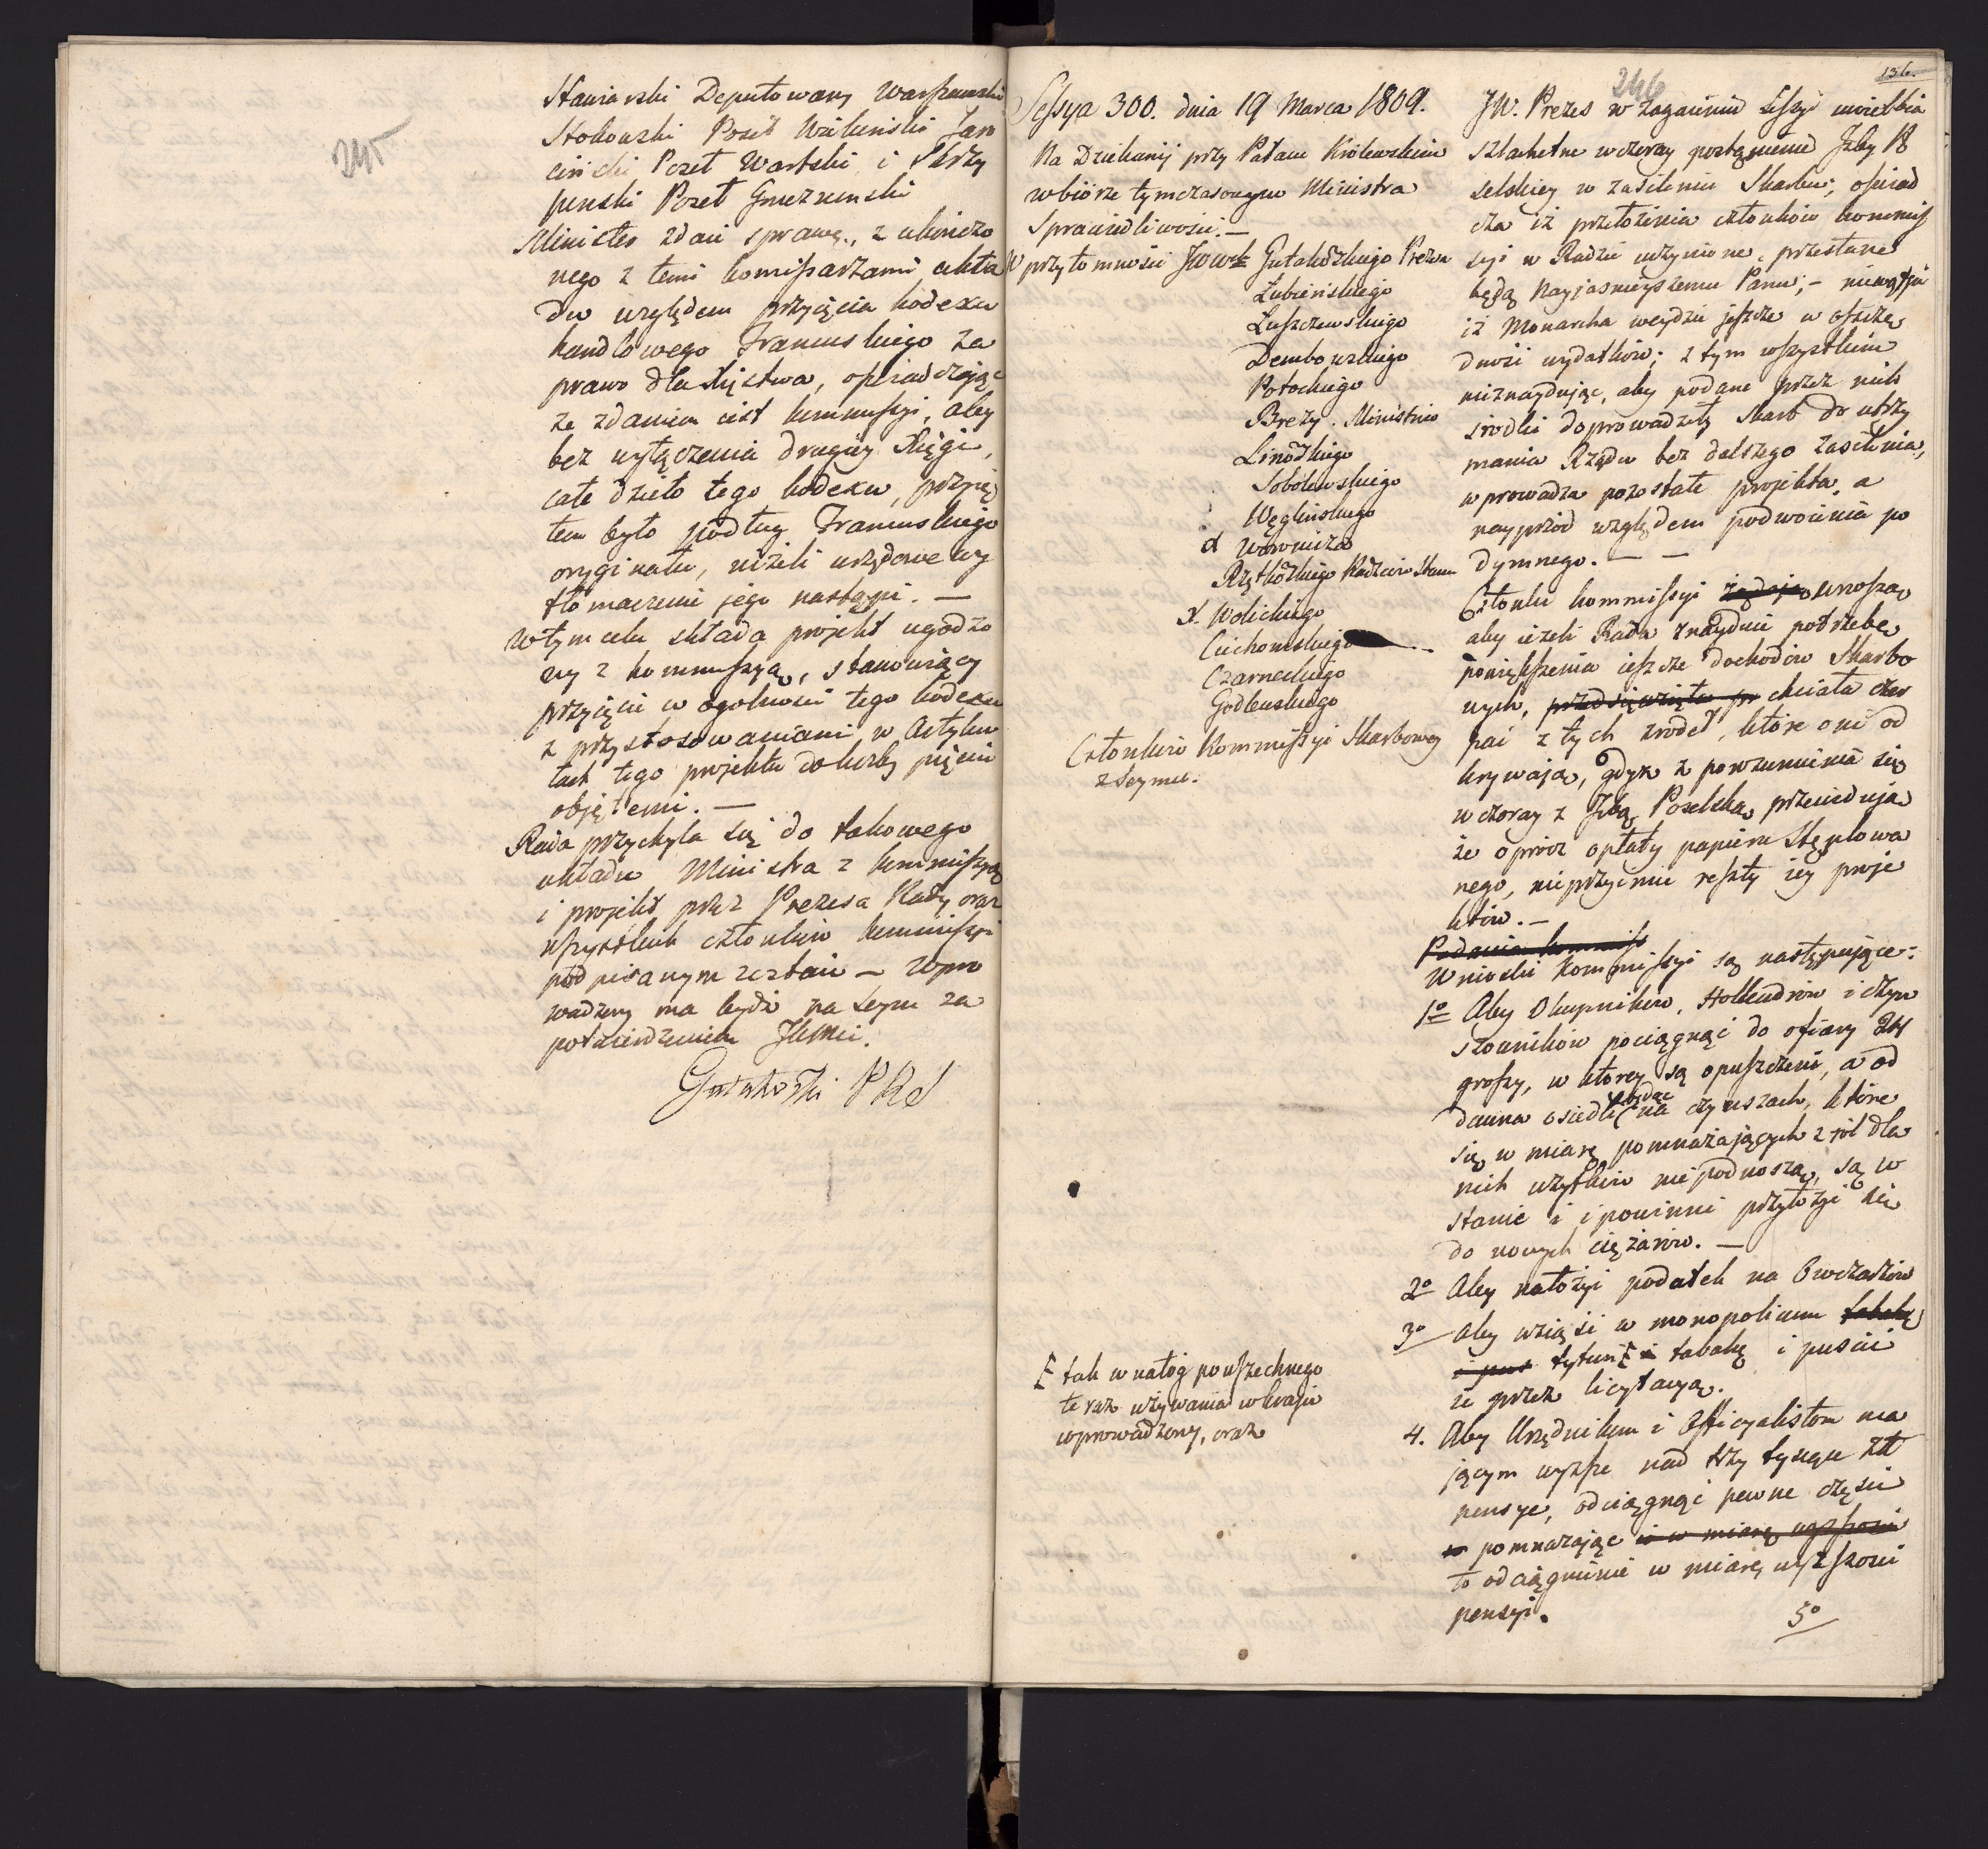 245
Stawiarski Deputowany Warszawski
Stokowski Poseł Wieluński Jaro
ciński Poseł Wartski i Skrzy
puński Poseł Gnieznenski
Minister zdaie sprawę, z ukończo
nego z temi komissarzami ukła
du względem przyięcia kodexu
handlowego Francuskiego za
prawo dla Xięstwa, oświadczając
że zdaniem iest kommissyi, aby
bez wyłączenia drugiey Xięgi,
całe dzieło tego kodexu, przyię
tem było podług Francuskiego
oryginału, niżeli urzędowe wy
tłomaczenie jego nastąpi. —
W tym celu składa projekt ugodzo
ny z kommissyą, stanowiący
przyięcie w ogolności tego kodexu
z przystosowaniami w Artyku
łach tego projektu do liczby pięciu
objętemi. —
Rada przychyla się do takowego
układu Ministra z kommissyą
i projekt przez Prezesa Rady oraz
wszystkich członków kommissyi
podpisanym został — Wpro
wadzony ma bydź na Seym za
potwierdzeniem JKMci.
Gutakowski PRS
246
136.
Sessya 300. dnia 19 Marca 1809.
Na Dziekanij przy Pałacu Królewskim
w biórze tymczasowym Ministra
Sprawiedliwości. —
W przytomności JWWch Gutakowskiego Prezesa
Łubieńskiego
Łuszczewskiego
Dembowskiego
Potockiego
Brezy. Ministrów
Linowskiego
Sobolewskiego
Węglińskiego
d Woronicza
Rzętkowskiego Radzców Stanu
X. Wolickiego
Cichowskiego
Czarneckiego
Godlewskiego
Członków Kommissyi Skarbowey
z Seymu.
JW. Prezes w zagaieniu Sessyi uwielbia
szlachetne wczoray postąpienie Izby Po
selskiey w zasileniu Skarbu; oświad
cza iż przełożenia członków kommis
syi w Radzie uczynione, przesłane
będą Nayjasnieyszemu Panu; — niewątpi
iż Monarcha weydzie jeszcze w oszczę
dności wydatków; z tym wszystkim
nieznaydując, aby podane przez nich
srodki doprowadziły Skarb do utrzy
mania Rządu bez dalszego zasilenia,
wprowadza pozostałe projekta, a
nayprzód względem podwoienia po
dymnego. — —
Członki kommissyi żądają wnoszą
aby ieżeli Rada znayduie potrzebę
powiększenia ieszcze dochodów Skarbo
wych, przedsięwzięła chciała czer
pać z tych zrodeł, które oni od
krywają, gdyż z porozumienia się
wczoray z Izbą Poselską przewidują
że oprócz opłaty papieru Stęplowa
nego, nieprzyimie reszty iey proje
któw. —
Podania kommiss
Wnioski Kommissyi są następujące:
1o Aby Okupników, Hollendrów i czyn
szowników pociągnąć do ofiary 24
groszy, w ktorey są opuszczeni, a od
dawna osiedli będąc na czynszach, które
się w miarę pomnażających z ról dla
nich użytków nie podnoszą, są w
stanie i i powinni przyłożyć się
do nowych ciężarów. —
2o Aby nałożyć podatek na Owczarzów
3o Aby wziąść w monopolium tabakę
i pus tytuń [ i tabakę i puścić
ie przez licytacyą.
[ tak w nałóg powszechnego
teraz używania w kraju
wprowadzony, oraz
4. Aby Urzędnikom i Officyalistom ma
jącym wyższe nad trzy tysiące zł
pensye, odciągnąć pewne części
pomnażając w miarę wyższości
to odciągnienie w miarę wyższości
pensyi.
5o